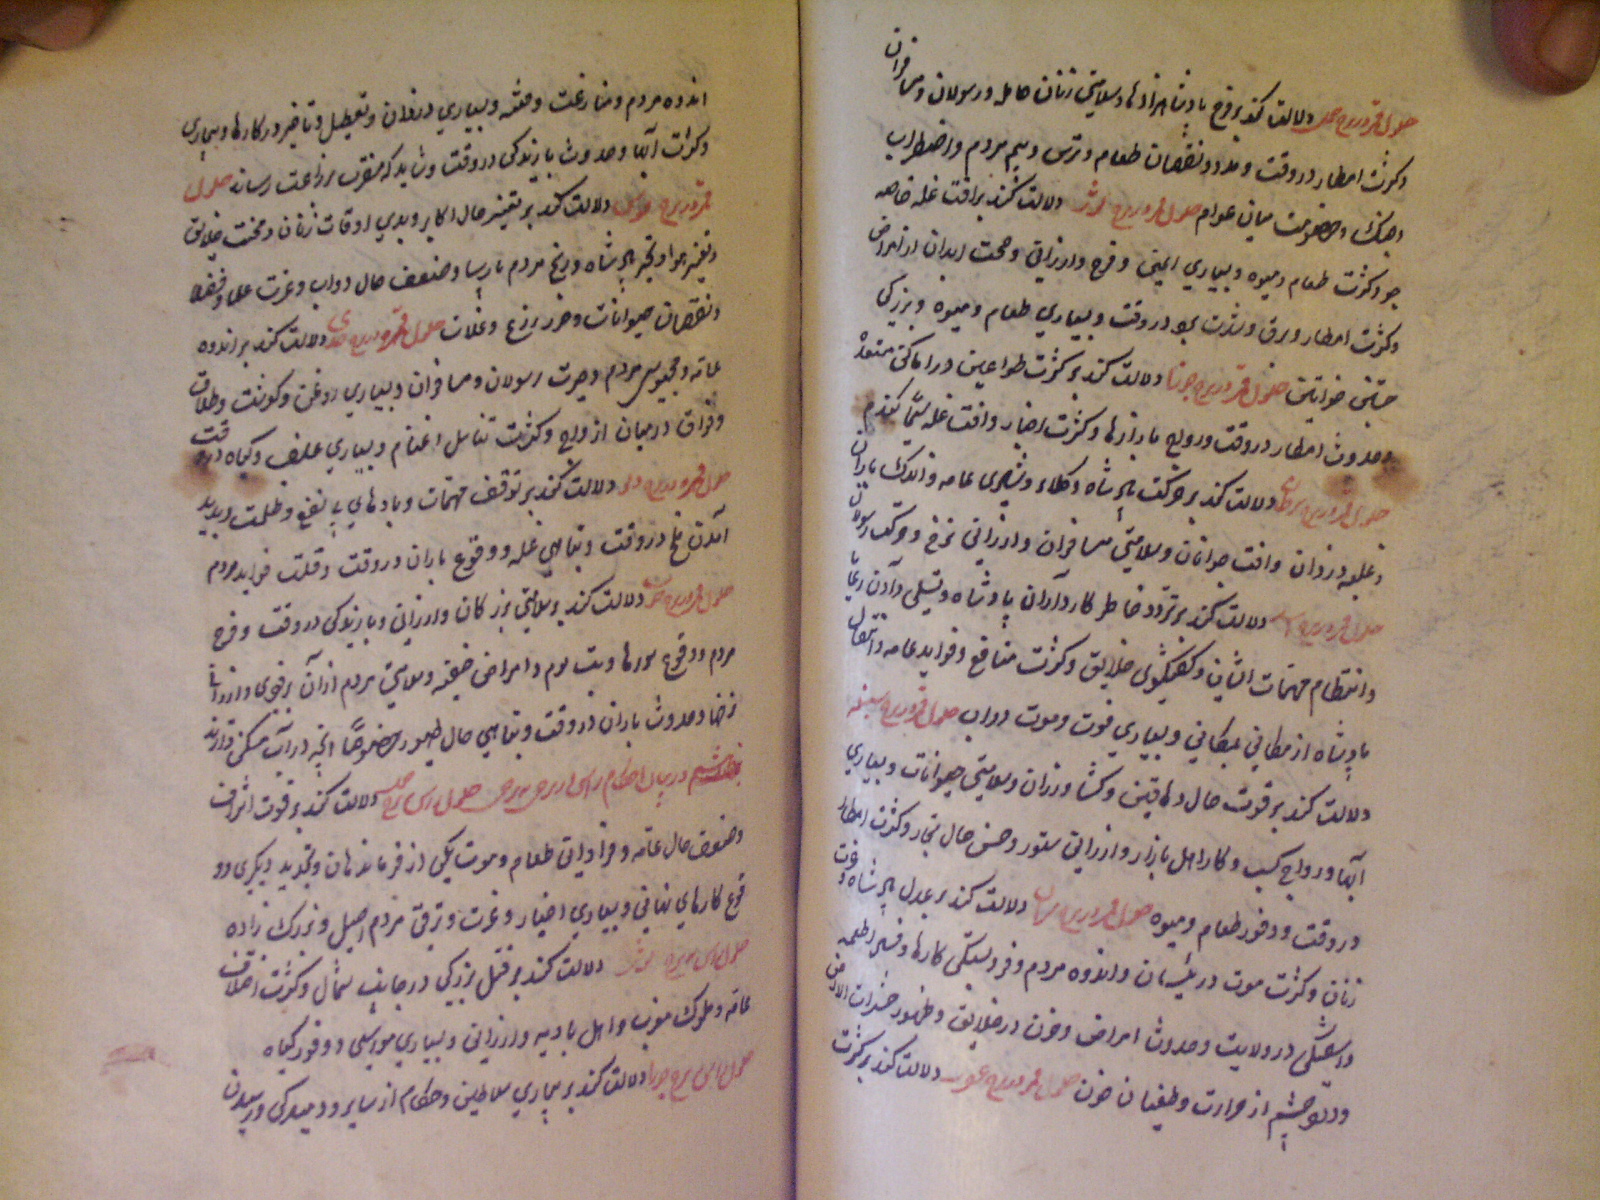 حلول قمر در برج حمل دلالت کند بر فرح پادشاهزادها و سلامتی زنان حامله و رسولان و مسافران
و کثرت امطار در وقت و مدد و نقصان طعام و ترس و بیم مردم و اضطراب
و جنگ و خصومت میان عوام حلول قمر در برج ثور دلالت کند بر آفت غله خاصه
جو و کثرت طعام و میوه و بیماری ایمنی و فرح و ارزانی و صحت ابدان از امراض
و کثرت امطار و برق و شدت در وقت و بسیاری طعام و میوه و بزرگی
جستن خواتین حلول قمر در برج جوزا دلالت کند بر کثرت طواعین در اماکن متعدده
و حدوث امطار در وقت و رواج بازارها و کثرت اخبار و آفت غله سیما گندم
حلول قمر در برج سرطان دلالت کند بر حرکت پادشاه و کلاء و عامه و اندک باران
و غلبه دزدان و آفت جوانان و سلامتی مسافران و ارزانی نرخ و حرکت رسولان
حلول قمر در برج اسد دلالت کند بر تردد خاطر کارداران پادشاه و تسلی دادن رعایا
و انتظام مهمات ایشان و گفتگوی خلایق و کثرت منافع و فواید عامه و انتقال
پادشاه از مکانی بمکانی و بسیاری فوت و موت دواب حلول قمر در برج سنبله
دلالت کند بر قوت حال دهاقین و کشاورزان و سلامتی حیوانات و بسیاری
آبها و رواج کسب و کار اهل بازار و ارزانی ستور و حسن حال تجار و کثرت امطار
در وقت و وفور طعام و میوه حلول قمر در برج میزان دلالت کند بر عدل پادشاه و عزت
زنان و کثرت موت در ایشان و اندوه مردم و فروبستگی کارها و
در ولایت و حدوث امراض و حزن در خلایق و ظهور حشرات الارض
و درد چشم از حرارت و طغیان خون حلول قمر در برج عقرب دلالت کند بر کثرت
اندوه مردم و منازعت و فتنه و بسیاری دزدان و تعطیل و تاخیر در کارها و بیماری
و کثرت آبها و حدوث بارندگی در وقت و شاید که مضرت بزراعت رساند حلول
قمر در برج قوس دلالت کند بر تغییر حال اکابر و بدی اوقات زنان و محنت خلایق
و تغییر هوا و تجبر پادشاه و رنج مردم پارسا و ضعف حال دواب و عزت علما و فضلا
و نقصان حیوانات و ضرر بزرع و غلات حلول قمر در برج جدی دلالت کند بر اندوه
عامه و محبوسی مردم و حیرت رسولان و مسافران و بسیاری روغن و گوشت و طلاق
و فراق در میان ازواج و کثرت تناسل اغنام و بسیاری علف و گیاه در وقت
حلول قمر در برج دلو دلالت کند بر توقف مهمات و بادهای بی نفع و ظلمت و پدید
آمدن ملخ در وقت و تباهی غله و وقوع باران در وقت و قلت فواید مردم
حلول قمر در برج حوت دلالت کند بر سلامتی بزرگان و ارزانی و بارندگی در وقت و فرح
مردم و وقوع سورها و بیت سوم و امراض خفیفه و سلامتی مردم از آن بزودی و ارزانی
نرخها و حدوث باران در وقت و تباهی حال طیور خصوصا آنچه در آب مسکن دارند
در بیان احکام راس در بروج حلول راس در برج حمل دلالت کند بر قوت اشراف
و ضعف حال عامه و فراوانی طعام و موت یکی از فرماندهان و تجدید دیگری و و
قوع کارهای نهانی و بسیاری اخبار و عزت و ترقی مردم اصیل و بزرگ زاده
حلول راس در برج ثور دلالت کند بر قتل بزرگی در جانب شمال و کثرت اختلاف
عامه و ملوک مغرب و اهل بادیه و ارزانی و بسیاری مواشی و وفور گیاه
حلول راس در برج جوزا دلالت کند بر بیماری سلاطین و حکام از سایر و رسیدن